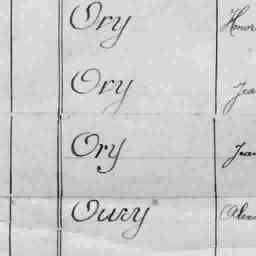 Ory Honor
Ory Jea
Ory Jean
Oury Alex